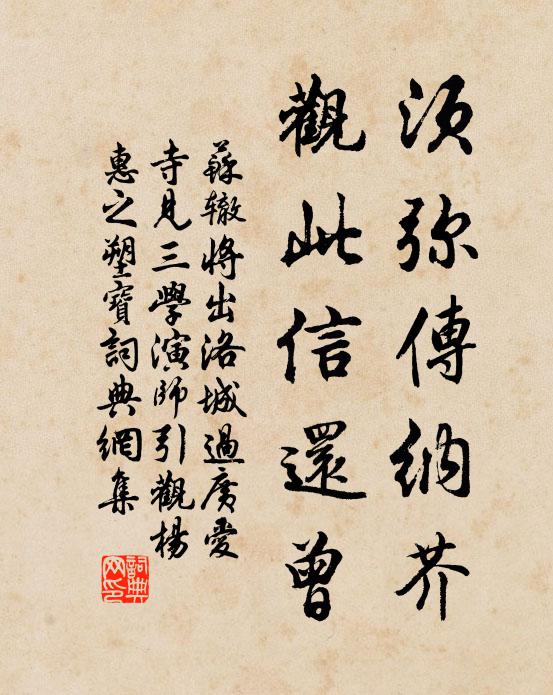 須弥傳納芥
觀此信還曾
蘇辙將出洛城過廣愛
寺見三學演師引觀楊
惠之塑寶詞典網集
詞典
网印